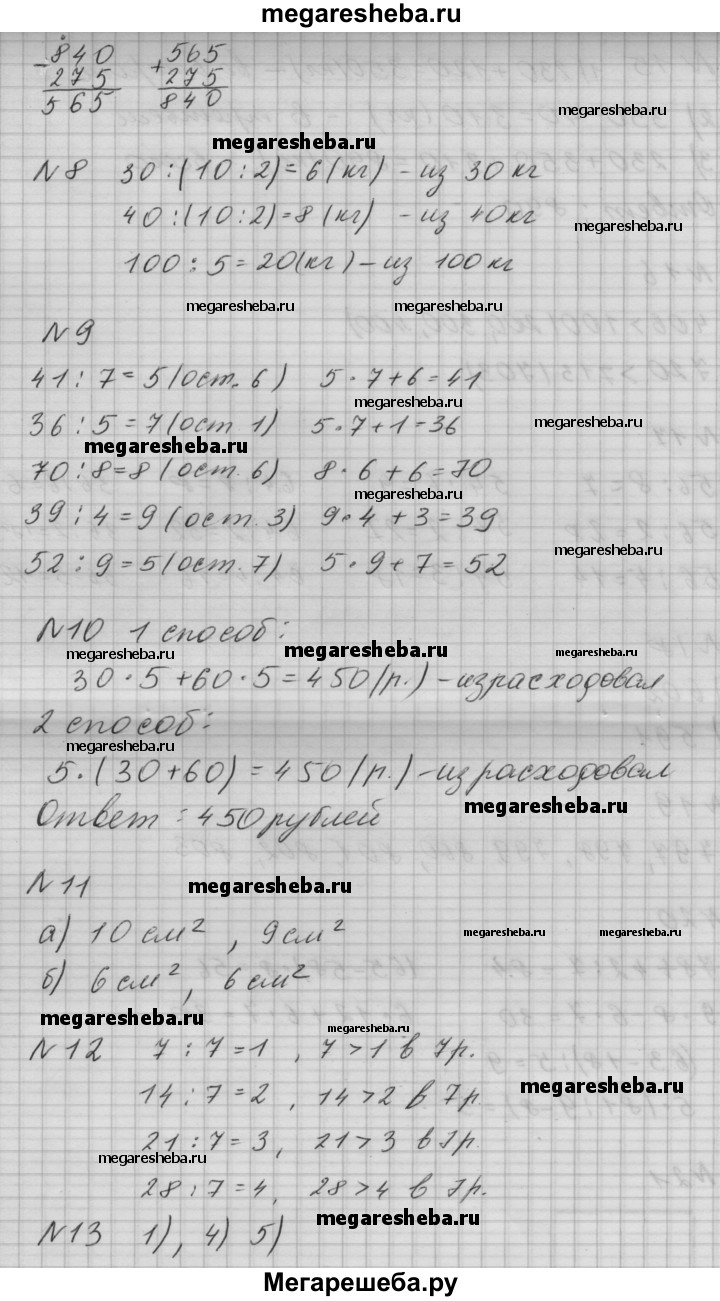 megaresheba.ru
- 840 + 565
275 275
565 840
megaresheba.ru
megaresheba.ru
N8 30 : (10 : 2) = 6 (кг) - из 30 кг
40 : (10 : 2) = 8 (кг) - из 40 кг
megaresheba.ru
100 : 5 = 20 (кг) - из 100 кг
megaresheba.ru megaresheba.ru
N9
41 : 7 = 5 (ост. 6) 5 · 7 + 6 = 41
megaresheba.ru
36 : 5 = 7 (ост. 1) 5 · 7 + 1 = 36
megaresheba.ru
megaresheba.ru
70 : 8 = 8 (ост. 6) 8 · 6 + 6 = 70
megaresheba.ru
39 : 4 = 9 (ост. 3) 9 · 4 + 3 = 39
megaresheba.ru
52 : 9 = 5 (ост. 7) 5 · 9 + 7 = 52
N10 1 способ:
megaresheba.ru megaresheba.ru megaresheba.ru
30 · 5 + 60 · 5 = 450 (р.) - израсходовал
2 способ:
megaresheba.ru
5 · (30 + 60) = 450 (р.) - израсходовал
megaresheba.ru
Ответ : 450 рублей
N11 megaresheba.ru
а) 10 см² , 9 см²
megaresheba.ru megaresheba.ru
б) 6 см² , 6 см²
megaresheba.ru
megaresheba.ru
N12 7 : 7 = 1 , 7 > 1 в 7р.
megaresheba.ru
14 : 7 = 2 , 14 > 2 в 7р.
21 : 7 = 3, 21 > 3 в 7р.
megaresheba.ru
28 : 7 = 4, 28 > 4 в 7р.
megaresheba.ru
N13 1), 4) 5)
Мегарешеба.ру